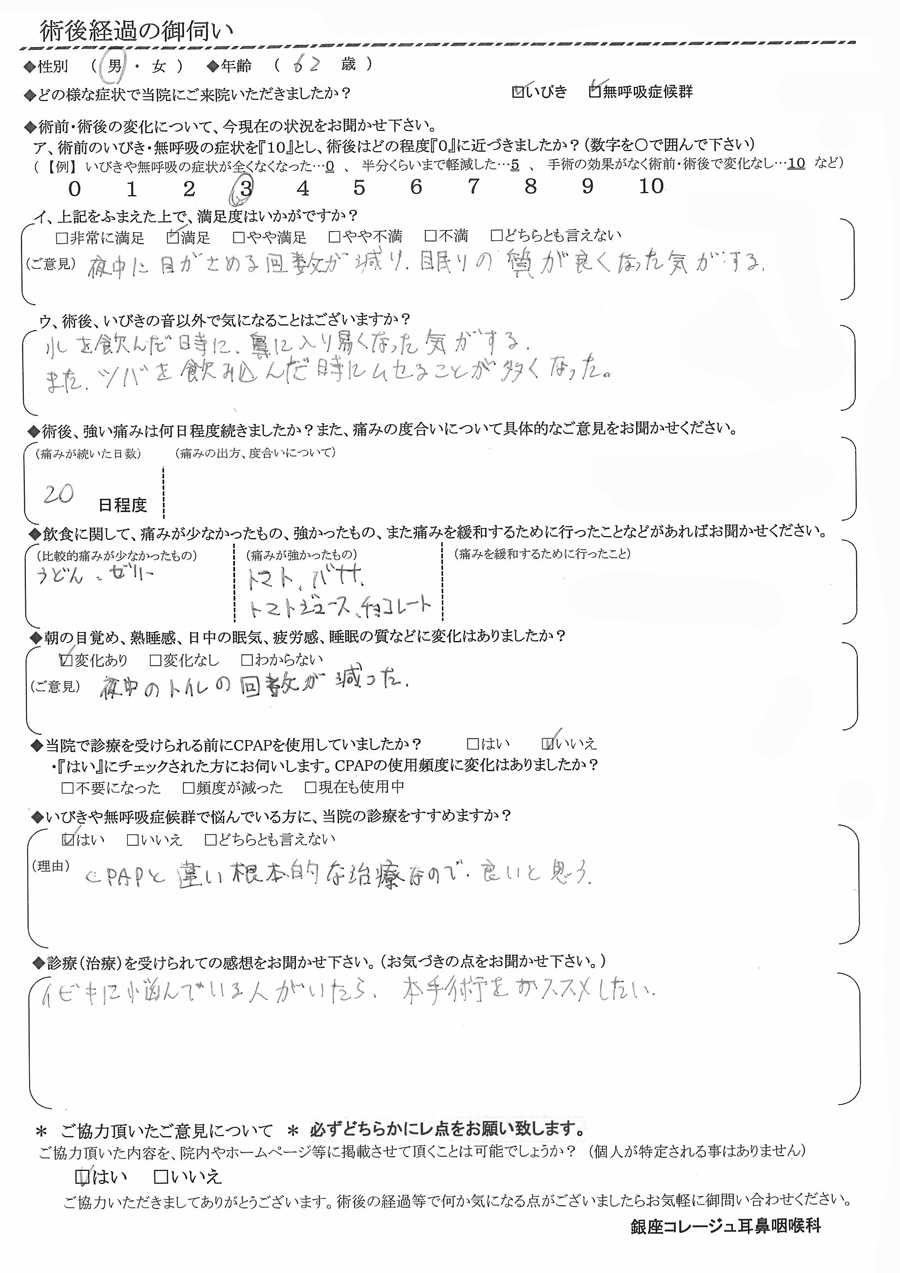 術後経過の御伺い
◆性別 （ 男 ・ 女 ） ◆年齢 （ 62 歳 ）
◆どの様な症状で当院にご来院いただきましたか？ ☑いびき ☑無呼吸症候群
◆術前・術後の変化について、今現在の状況をお聞かせ下さい。
ア、術前のいびき・無呼吸の症状を『10』とし、術後はどの程度『0』に近づきましたか？（数字を〇で囲んで下さい）
（【例】 いびきや無呼吸の症状が全くなくなった…0 、 半分くらいまで軽減した…5 、 手術の効果がなく術前・術後で変化なし…10 など）
0 1 2 3 4 5 6 7 8 9 10
イ、上記をふまえた上で、満足度はいかがですか？
□非常に満足 ☑満足 □やや満足 □やや不満 □不満 □どちらとも言えない
（ご意見） 夜中に目がさめる回数が減り、眠りの質が良くなった気がする。
ウ、術後、いびきの音以外で気になることはございますか？
水を飲んだ時に、鼻に入り易くなった気がする。
また、ツバを飲み込んだ時にムセることが多くなった。
◆術後、強い痛みは何日程度続きましたか？また、痛みの度合いについて具体的なご意見をお聞かせください。
（痛みが続いた日数） （痛みの出方、度合いについて）
20 日程度
◆飲食に関して、痛みが少なかったもの、強かったもの、また痛みを緩和するために行ったことなどがあればお聞かせください。
（比較的痛みが少なかったもの） （痛みが強かったもの） （痛みを緩和するために行ったこと）
うどん、ゼリー トマト、バナナ、
トマトジュース、チョコレート
◆朝の目覚め、熟睡感、日中の眠気、疲労感、睡眠の質などに変化はありましたか？
☑変化あり □変化なし □わからない
（ご意見） 夜中のトイレの回数が減った。
◆当院で診療を受けられる前にCPAPを使用していましたか？ □はい ☑いいえ
・『はい』にチェックされた方にお伺いします。CPAPの使用頻度に変化はありましたか？
□不要になった □頻度が減った □現在も使用中
◆いびきや無呼吸症候群で悩んでいる方に、当院の診療をすすめますか？
☑はい □いいえ □どちらとも言えない
（理由） CPAPと違い根本的な治療なので、良いと思う。
◆診療（治療）を受けられての感想をお聞かせ下さい。（お気づきの点をお聞かせ下さい。）
イビキに悩んでいる人がいたら、本手術をおススメしたい。
＊ ご協力頂いたご意見について ＊ 必ずどちらかにレ点をお願い致します。
ご協力頂いた内容を、院内やホームページ等に掲載させて頂くことは可能でしょうか？ （個人が特定される事はありません）
☑はい □いいえ
ご協力いただきましてありがとうございます。術後の経過等で何か気になる点がございましたらお気軽に御問い合わせください。
銀座コレージュ耳鼻咽喉科